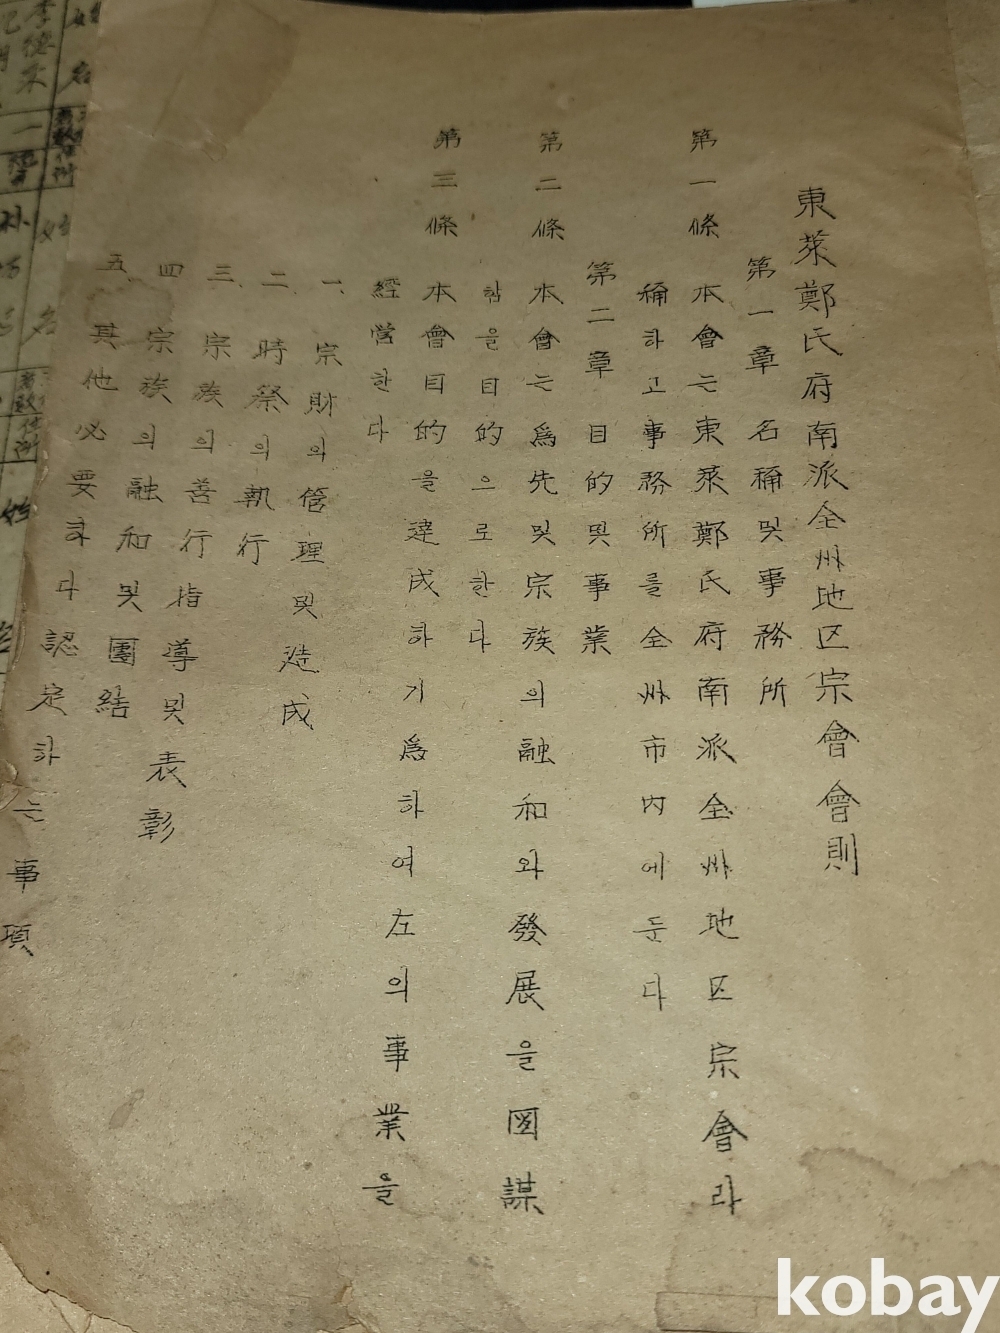 東萊鄭氏府南派全州地区宗會會則
第一章 名稱및事務所
第一條 本會는東萊鄭氏府南派全州地区宗會라
稱하고事務所를全州市内에둔다
第二章 目的및事業
第二條 本會는爲先및宗族의融和와發展을圖謀
함을目的으로한다
第三條 本會目的을達成하기爲하여左의事業을
經営한다
一、宗財의管理및造成
二、時祭의執行
三、宗族의善行指導및表彰
四、宗族의融和및團結
五、其他必要하다認定하는事項
姓名
kobay